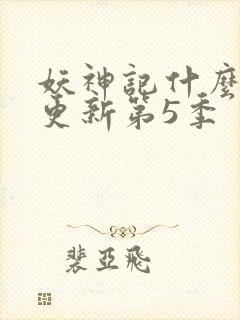 妖神記什麼
更新第5季
裴亞飛